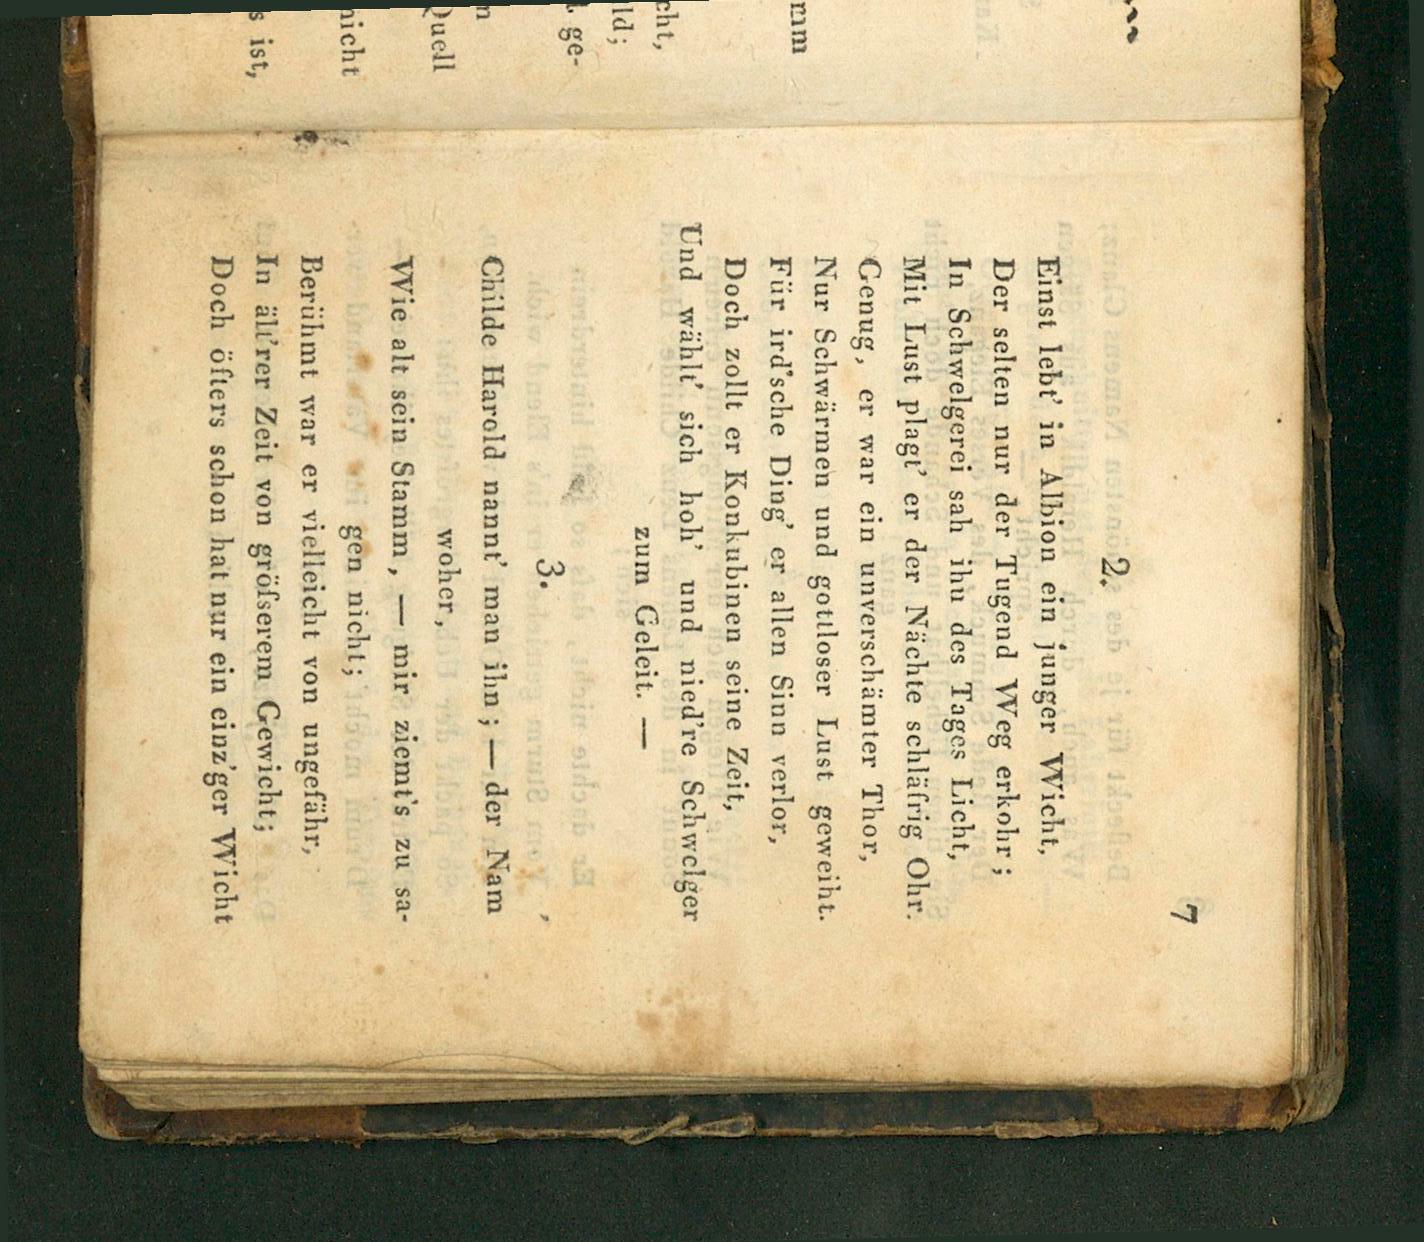 mm
cht,
ld;
ge-
n
Quell
nicht
s ist,
7
2.
Einst lebt' in Albion ein junger Wicht,
Der selten nur der Tugend Weg erkohr;
In Schwelgerei sah ihn des Tages Licht,
Mit Lust plagt' er der Nächte schläfrig Ohr.
Genug, er war ein unverschämter Thor,
Nur Schwärmen und gottloser Lust geweiht.
Für ird'sche Ding' er allen Sinn verlor,
Doch zollt er Konkubinen seine Zeit,
Und wählt' sich hoh' und nied're Schwelger
zum Geleit. —
3.
Childe Harold nannt' man ihn; — der Nam
woher,
Wie alt sein Stamm, — mir ziemt's zu sa-
gen nicht;
Berühmt war er vielleicht von ungefähr,
In ält'rer Zeit von größerem Gewicht;
Doch öfters schon hat nur ein einz'ger Wicht